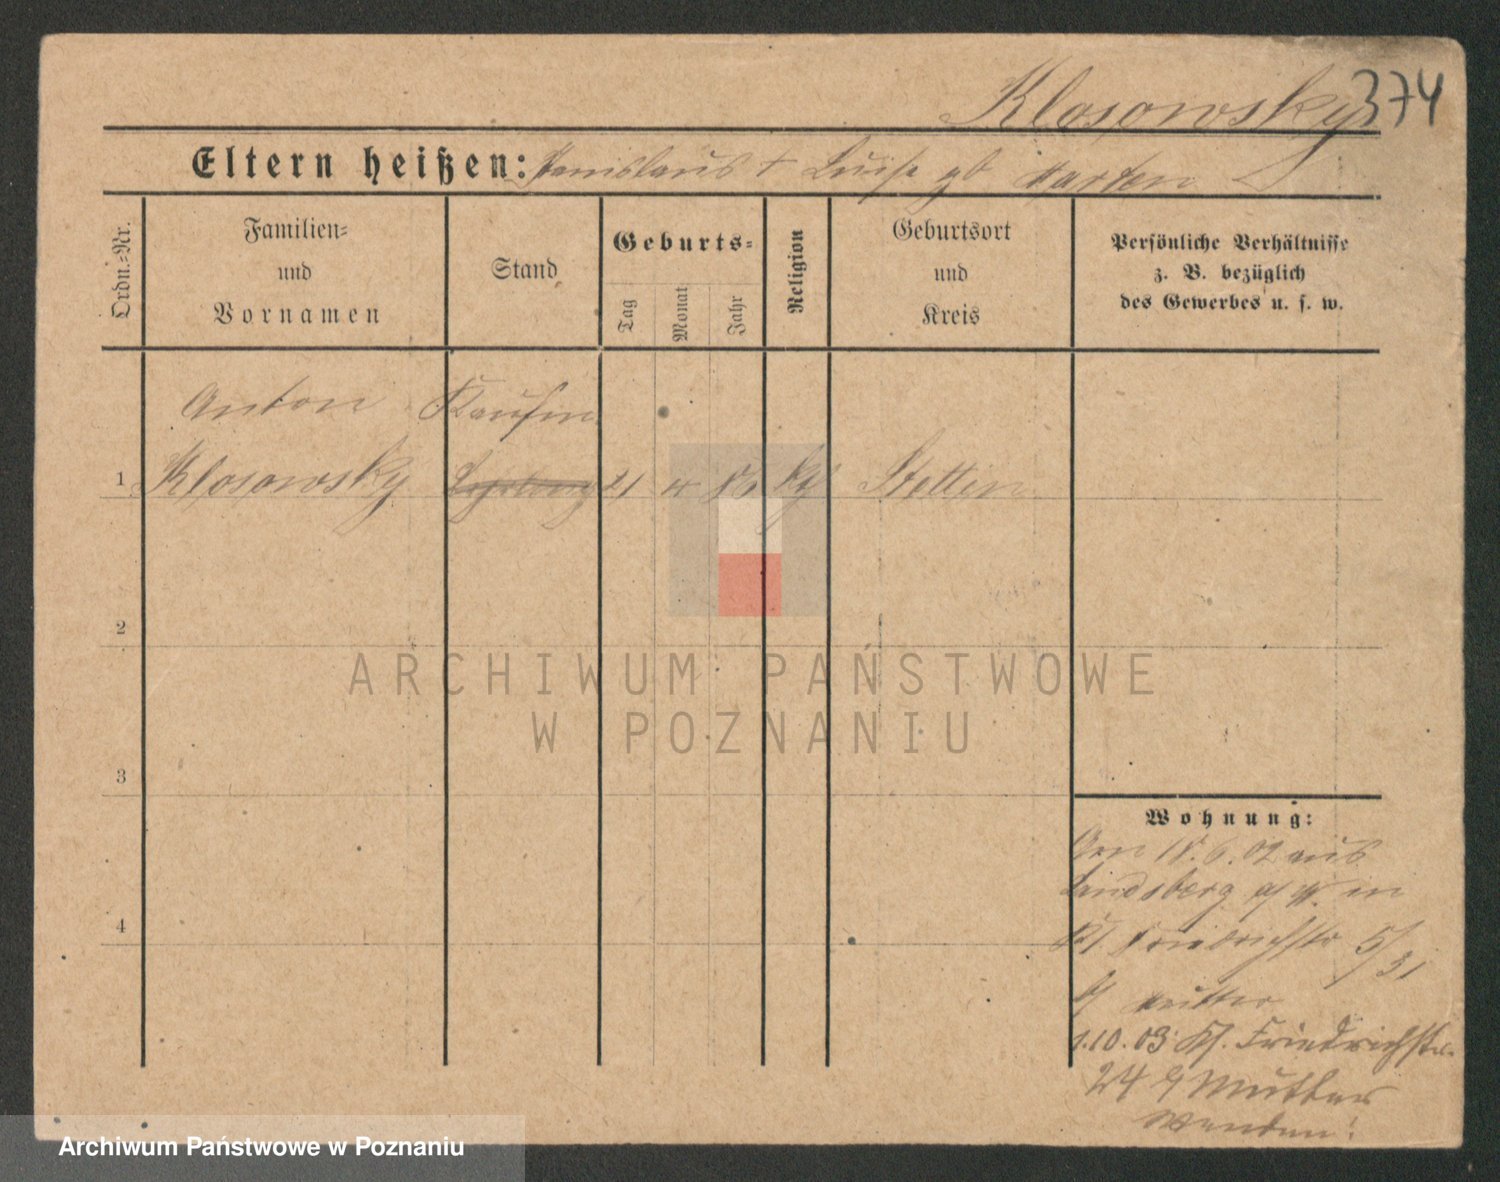 Klosowsky 374
Eltern heißen: Stanislaus + Luise gb
Ordn.-Nr.
Familien-
und
Vornamen
Stand
Geburts-
Tag
Monat
Jahr
Religion
Geburtsort
und
Kreis
Persönliche Verhältnisse
z. B. bezüglich
des Gewerbes u. s. w.
Anton Kaufm.
1 Klosowsky 21 Stettin
2
3
4
Wohnung:
18.6.02 aus
Landsberg a/W. in
Friedrichstr 5/31
b/ Mutter
1.10.03 Kl. Friedrichstr.
24 b/ Mutter
Wenden!
ARCHIWUM PAŃSTWOWE
W POZNANIU
Archiwum Państwowe w Poznaniu